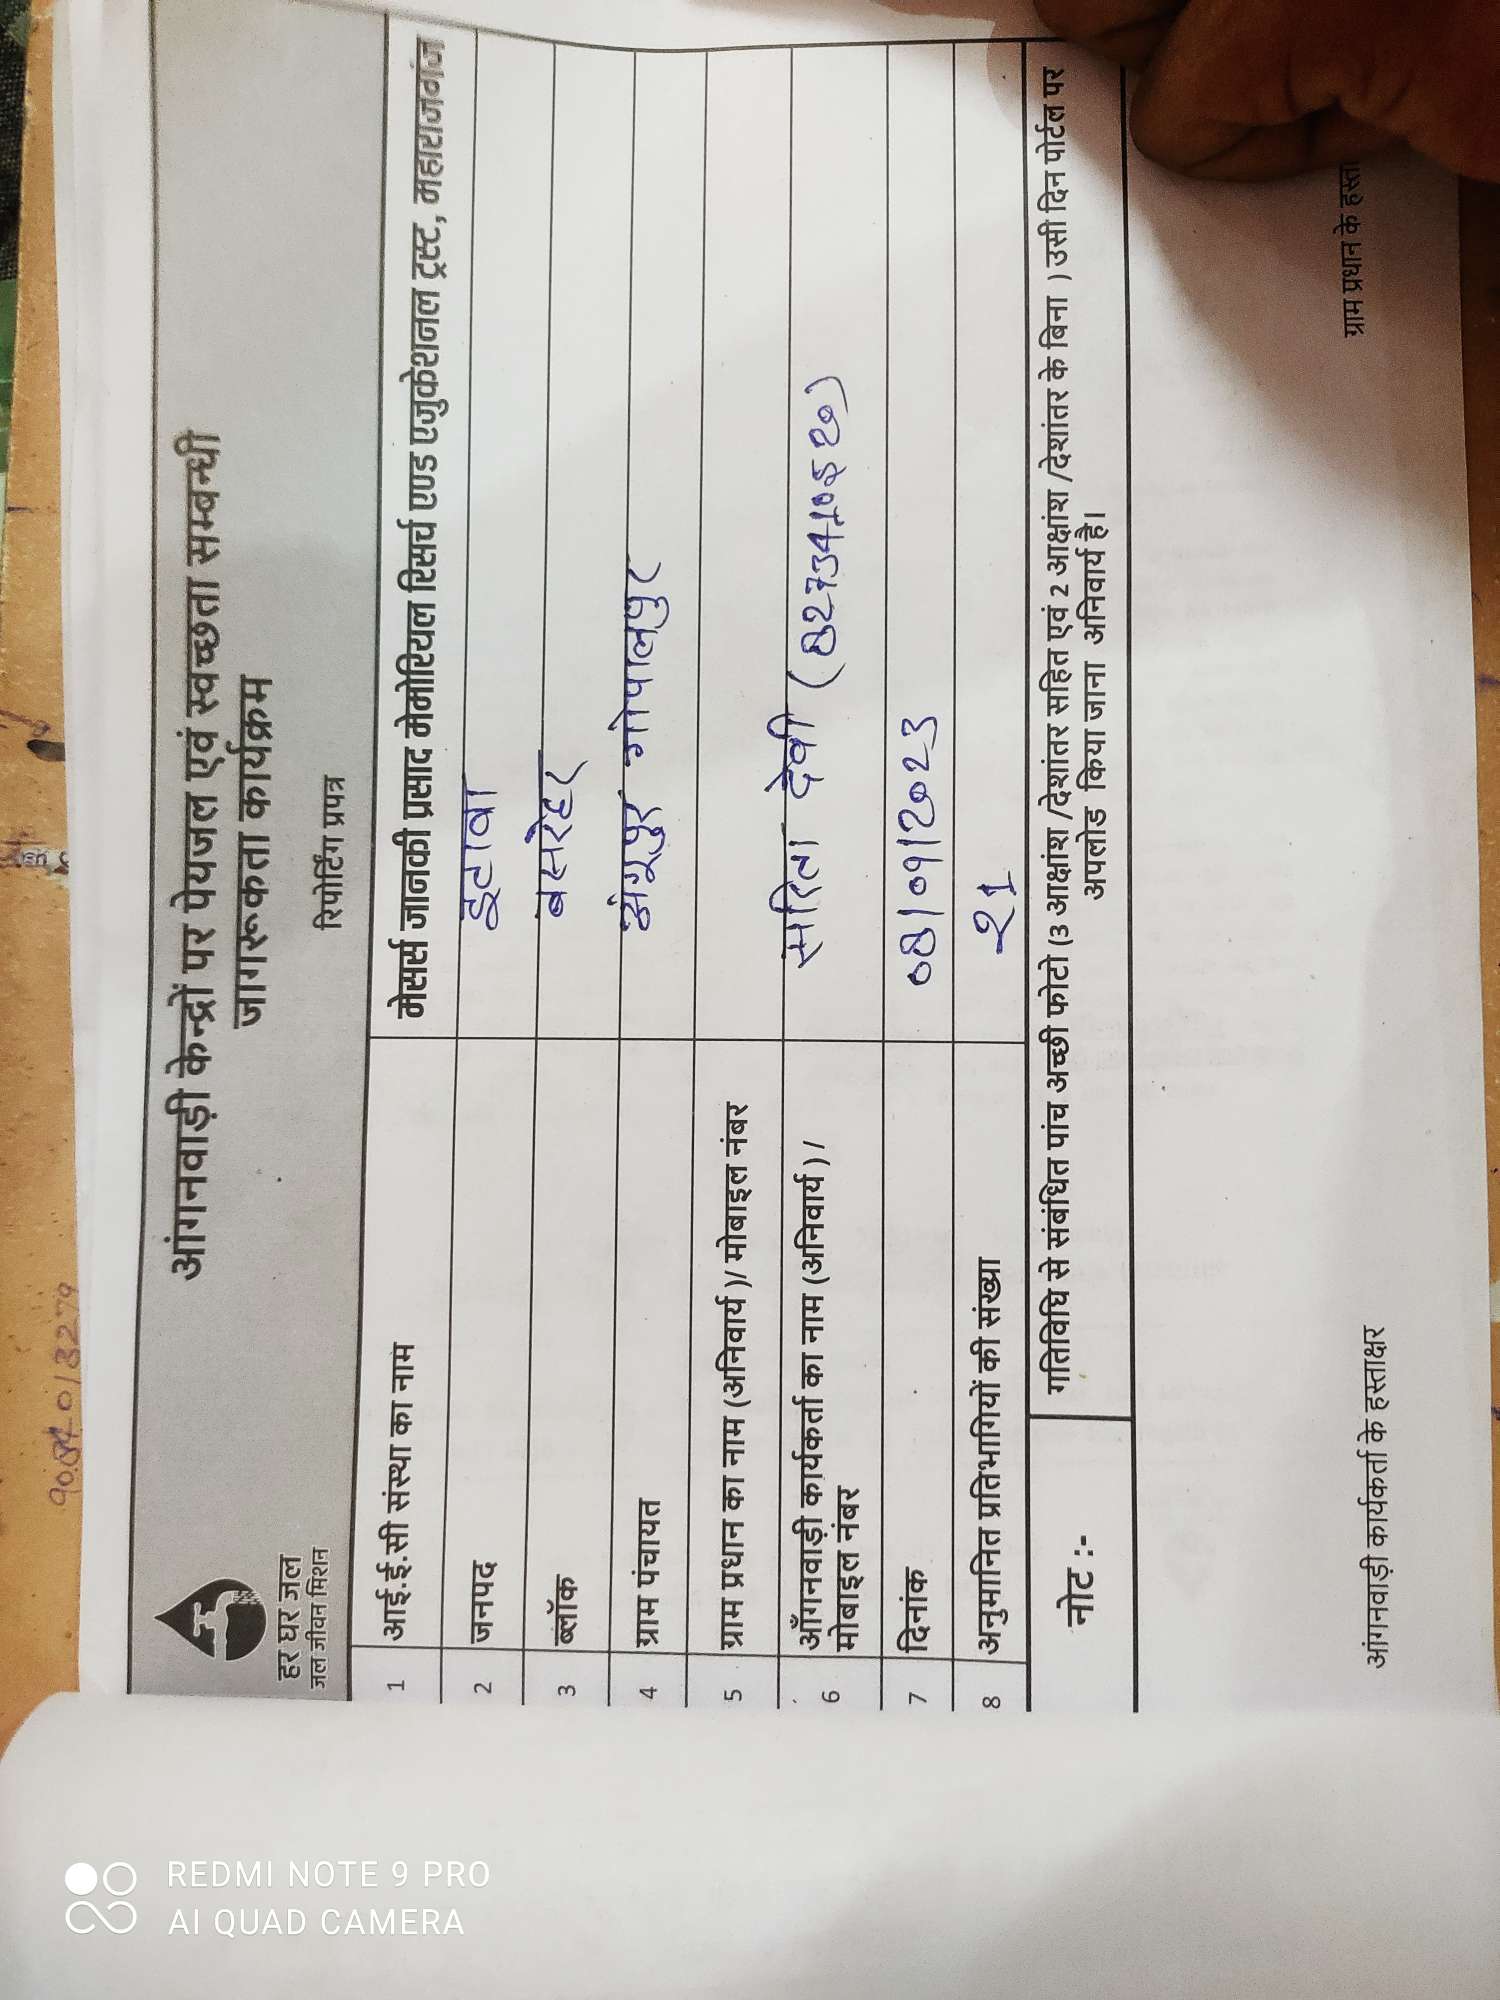 आंगनवाड़ी केन्द्रों पर पेयजल एवं स्वच्छता सम्बन्धी
जागरूकता कार्यक्रम
रिपोर्टिंग प्रपत्र
हर घर जल
जल जीवन मिशन
1 आई.ई.सी संस्था का नाम मेसर्स जानकी प्रसाद मेमोरियल रिसर्च एण्ड एजुकेशनल ट्रस्ट, महाराजगंज
2 जनपद इटावा
3 ब्लॉक बसरेहर
4 ग्राम पंचायत गोपालपुर
5 ग्राम प्रधान का नाम (अनिवार्य)/ मोबाइल नंबर
6 आँगनवाड़ी कार्यकर्ता का नाम (अनिवार्य)/ सरिता देवी
मोबाइल नंबर
7 दिनांक 08/09/2023
8 अनुमानित प्रतिभागियों की संख्या 21
नोट :- गतिविधि से संबंधित पांच अच्छी फोटो (3 आक्षांश /देशांतर सहित एवं 2 आक्षांश /देशांतर के बिना ) उसी दिन पोर्टल पर
अपलोड किया जाना अनिवार्य है।
आंगनवाड़ी कार्यकर्ता के हस्ताक्षर ग्राम प्रधान के हस्ता
REDMI NOTE 9 PRO
AI QUAD CAMERA